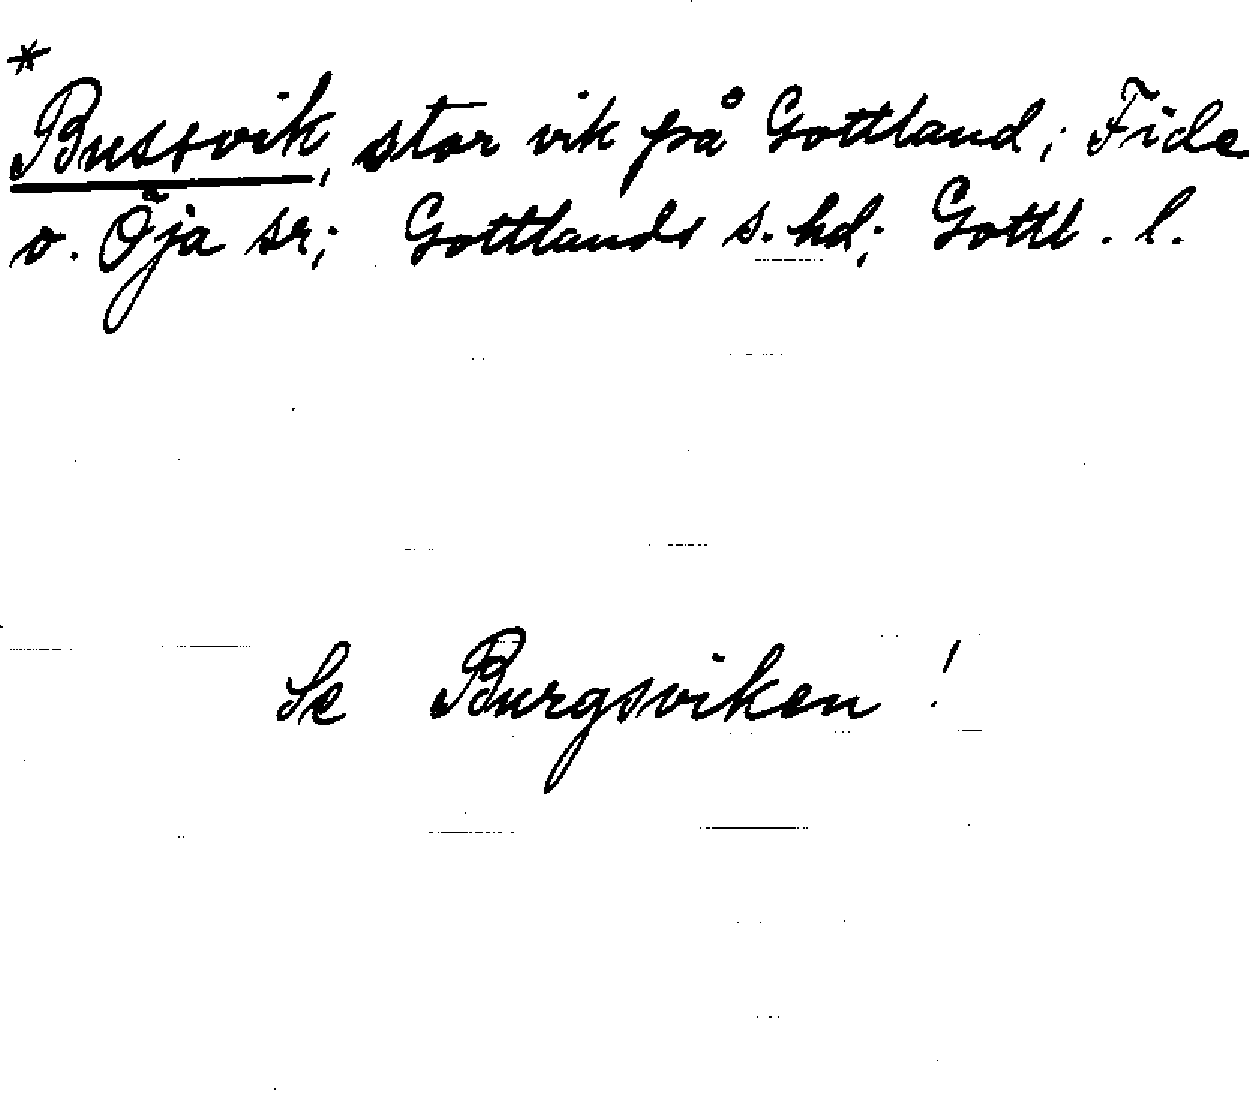 *
Bussvik, stor vik på Gottland; Fide
o. Öja sr; Gottlands s. hd; Gottl. l.
Se Burgsviken!